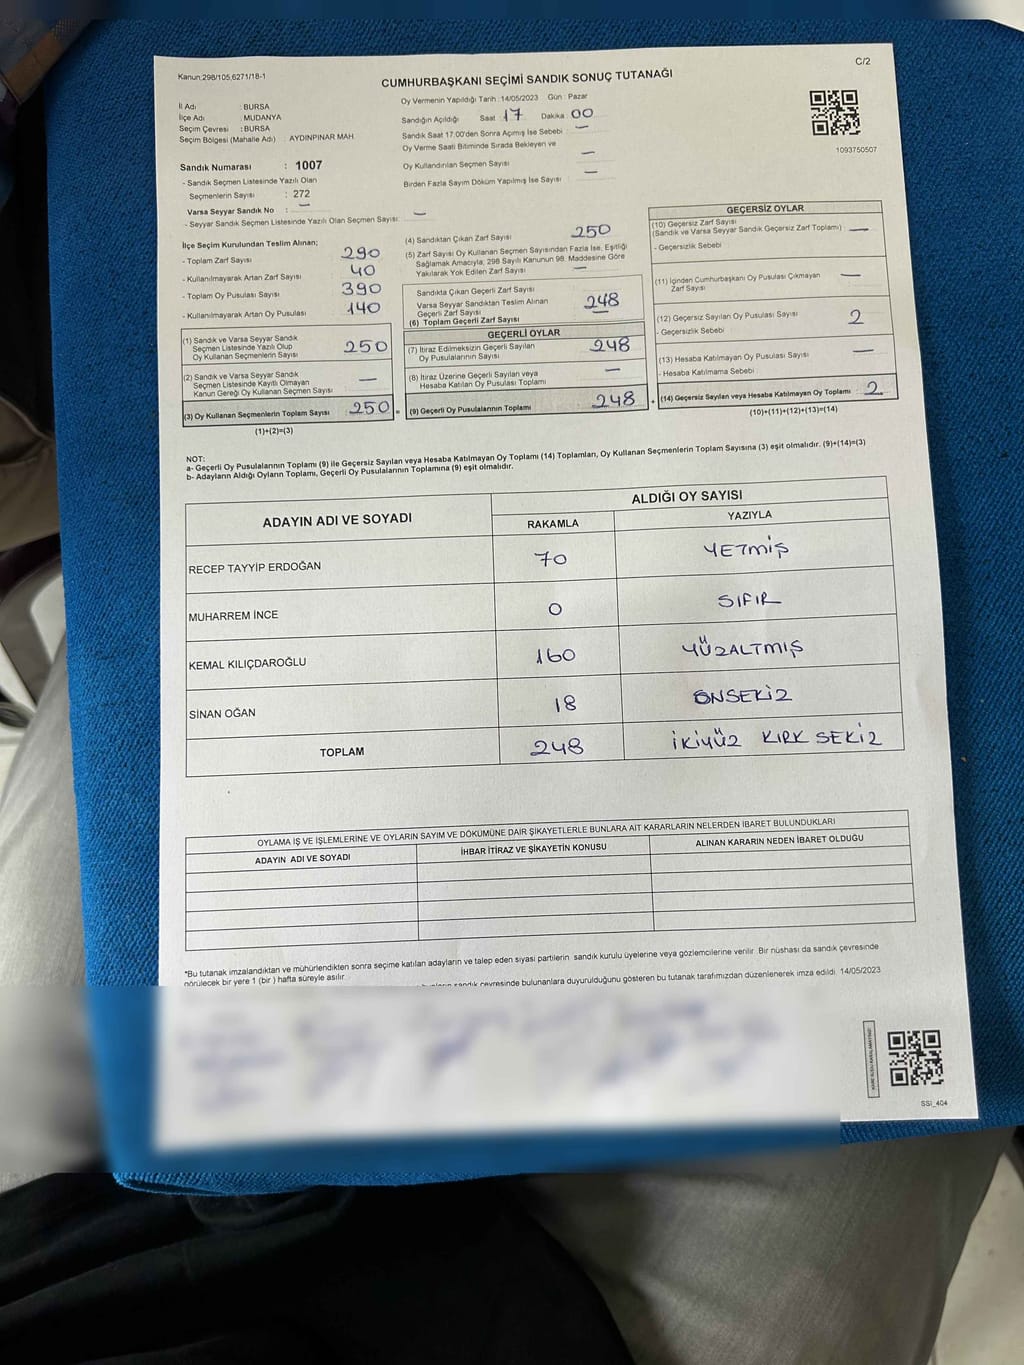 Kanun:298/105,6271/18-1
C/2
CUMHURBAŞKANI SEÇİMİ SANDIK SONUÇ TUTANAĞI
İl Adı : BURSA
İlçe Adı : MUDANYA
Seçim Çevresi : BURSA
Seçim Bölgesi (Mahalle Adı) : AYDINPINAR MAH.
Sandık Numarası : 1007
- Sandık Seçmen Listesinde Yazılı Olan
Seçmenlerin Sayısı : 272
Varsa Seyyar Sandık No : —
- Seyyar Sandık Seçmen Listesinde Yazılı Olan Seçmen Sayısı: —
Oy Vermenin Yapıldığı Tarih :14/05/2023 Gün : Pazar
Sandığın Açıldığı Saat 17 Dakika 00
Sandık Saat 17.00'den Sonra Açılmış İse Sebebi —
Oy Verme Saati Bitiminde Sırada Bekleyen ve
Oy Kullandırılan Seçmen Sayısı —
Birden Fazla Sayım Döküm Yapılmış İse Sayısı —
1093750507
İlçe Seçim Kurulundan Teslim Alınan;
- Toplam Zarf Sayısı 290
- Kullanılmayarak Artan Zarf Sayısı 40
- Toplam Oy Pusulası Sayısı 390
- Kullanılmayarak Artan Oy Pusulası 140
(1) Sandık ve Varsa Seyyar Sandık
Seçmen Listesinde Yazılı Olup
Oy Kullanan Seçmenlerin Sayısı 250
(2) Sandık ve Varsa Seyyar Sandık
Seçmen Listesinde Kayıtlı Olmayan
Kanun Gereği Oy Kullanan Seçmen Sayısı —
(3) Oy Kullanan Seçmenlerin Toplam Sayısı 250 =
(1)+(2)=(3)
(4) Sandıktan Çıkan Zarf Sayısı 250
(5) Zarf Sayısı Oy Kullanan Seçmen Sayısından Fazla İse, Eşitliği
Sağlamak Amacıyla, 298 Sayılı Kanunun 98. Maddesine Göre
Yakılarak Yok Edilen Zarf Sayısı —
Sandıkta Çıkan Geçerli Zarf Sayısı
Varsa Seyyar Sandıktan Teslim Alınan
Geçerli Zarf Sayısı
(6) Toplam Geçerli Zarf Sayısı 248
GEÇERLİ OYLAR
(7) İtiraz Edilmeksizin Geçerli Sayılan
Oy Pusulalarının Sayısı 248
(8) İtiraz Üzerine Geçerli Sayılan veya
Hesaba Katılan Oy Pusulası Toplamı —
(9) Geçerli Oy Pusulalarının Toplamı 248 +
GEÇERSİZ OYLAR
(10) Geçersiz Zarf Sayısı
(Sandık ve Varsa Seyyar Sandık Geçersiz Zarf Toplamı) —
- Geçersizlik Sebebi
(11) İçinden Cumhurbaşkanı Oy Pusulası Çıkmayan
Zarf Sayısı —
(12) Geçersiz Sayılan Oy Pusulası Sayısı 2
- Geçersizlik Sebebi
(13) Hesaba Katılmayan Oy Pusulası Sayısı —
- Hesaba Katılmama Sebebi
(14) Geçersiz Sayılan veya Hesaba Katılmayan Oy Toplamı 2
(10)+(11)+(12)+(13)=(14)
NOT:
a- Geçerli Oy Pusulalarının Toplamı (9) ile Geçersiz Sayılan veya Hesaba Katılmayan Oy Toplamı (14) Toplamları, Oy Kullanan Seçmenlerin Toplam Sayısına (3) eşit olmalıdır. (9)+(14)=(3)
b- Adayların Aldığı Oyların Toplamı, Geçerli Oy Pusulalarının Toplamına (9) eşit olmalıdır.
ADAYIN ADI VE SOYADI
ALDIĞI OY SAYISI
RAKAMLA YAZIYLA
RECEP TAYYİP ERDOĞAN 70 YETMİŞ
MUHARREM İNCE 0 SIFIR
KEMAL KILIÇDAROĞLU 160 YÜZALTMIŞ
SİNAN OĞAN 18 ONSEKİZ
TOPLAM 248 İKİYÜZ KIRK SEKİZ
OYLAMA İŞ VE İŞLEMLERİNE VE OYLARIN SAYIM VE DÖKÜMÜNE DAİR ŞİKAYETLERLE BUNLARA AİT KARARLARIN NELERDEN İBARET BULUNDUKLARI
ADAYIN ADI VE SOYADI İHBAR İTİRAZ VE ŞİKAYETİN KONUSU ALINAN KARARIN NEDEN İBARET OLDUĞU
*Bu tutanak imzalandıktan ve mühürlendikten sonra seçime katılan adayların ve talep eden siyasi partilerin sandık kurulu üyelerine veya gözlemcilerine verilir. Bir nüshası da sandık çevresinde
görülecek bir yere 1 (bir ) hafta süreyle asılır.
sandık çevresinde bulunanlara duyurulduğunu gösteren bu tutanak tarafımızdan düzenlenerek imza edildi. 14/05/2023
SSİ_404